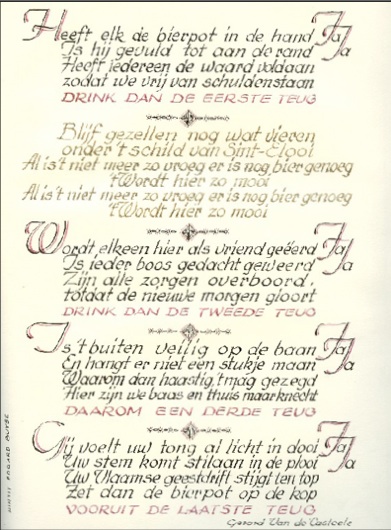 Heeft elk de bierpot in de hand Ja
Is hij gevuld tot aan de rand Ja
Heeft iedereen de waard voldaan
zodat we vrij van schulden staan
DRINK DAN DE EERSTE TEUG
Blijf gezellen nog wat vieren
onder 't schild van Sint-Elooi
Al is 't niet meer zo vroeg er is nog bier genoeg
't Wordt hier zo mooi
Al is 't niet meer zo vroeg er is nog bier genoeg
't Wordt hier zo mooi
Wordt elkeen hier als vriend geëerd Ja
Is ieder boos gedacht geweerd Ja
Zijn alle zorgen overboord,
totdat de nieuwe morgen gloort
DRINK DAN DE TWEEDE TEUG
Is 't buiten veilig op de baan Ja
En hangt er niet een stukje maan Ja
Waarom dan haastig, t'mag gezegd
Hier zijn we baas en thuis maar knecht
DAAROM EEN DERDE TEUG
Gij voelt uw tong al licht in dooi Ja
Uw stem komt stilaan in de plooi Ja
Uw Vlaamse geestdrift stijgt ten top
Zet dan de bierpot op de kop
VOORUIT DE LAATSTE TEUG
Gerard Van de Casteele
EDGARD BUYSE